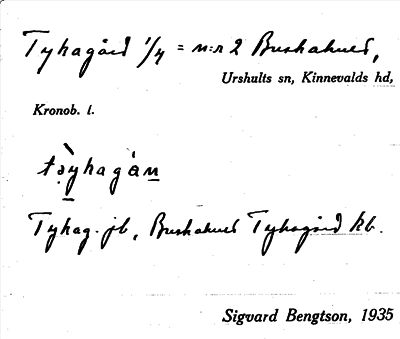 Tyhagård 1/4 = n:r 2 Buskahult,
Urshults sn, Kinnevalds hd,
Kronob. l.
tə̀yhagån
Tyhag. jb, Buskahult Tyhagård kb.
Sigvard Bengtson, 1935